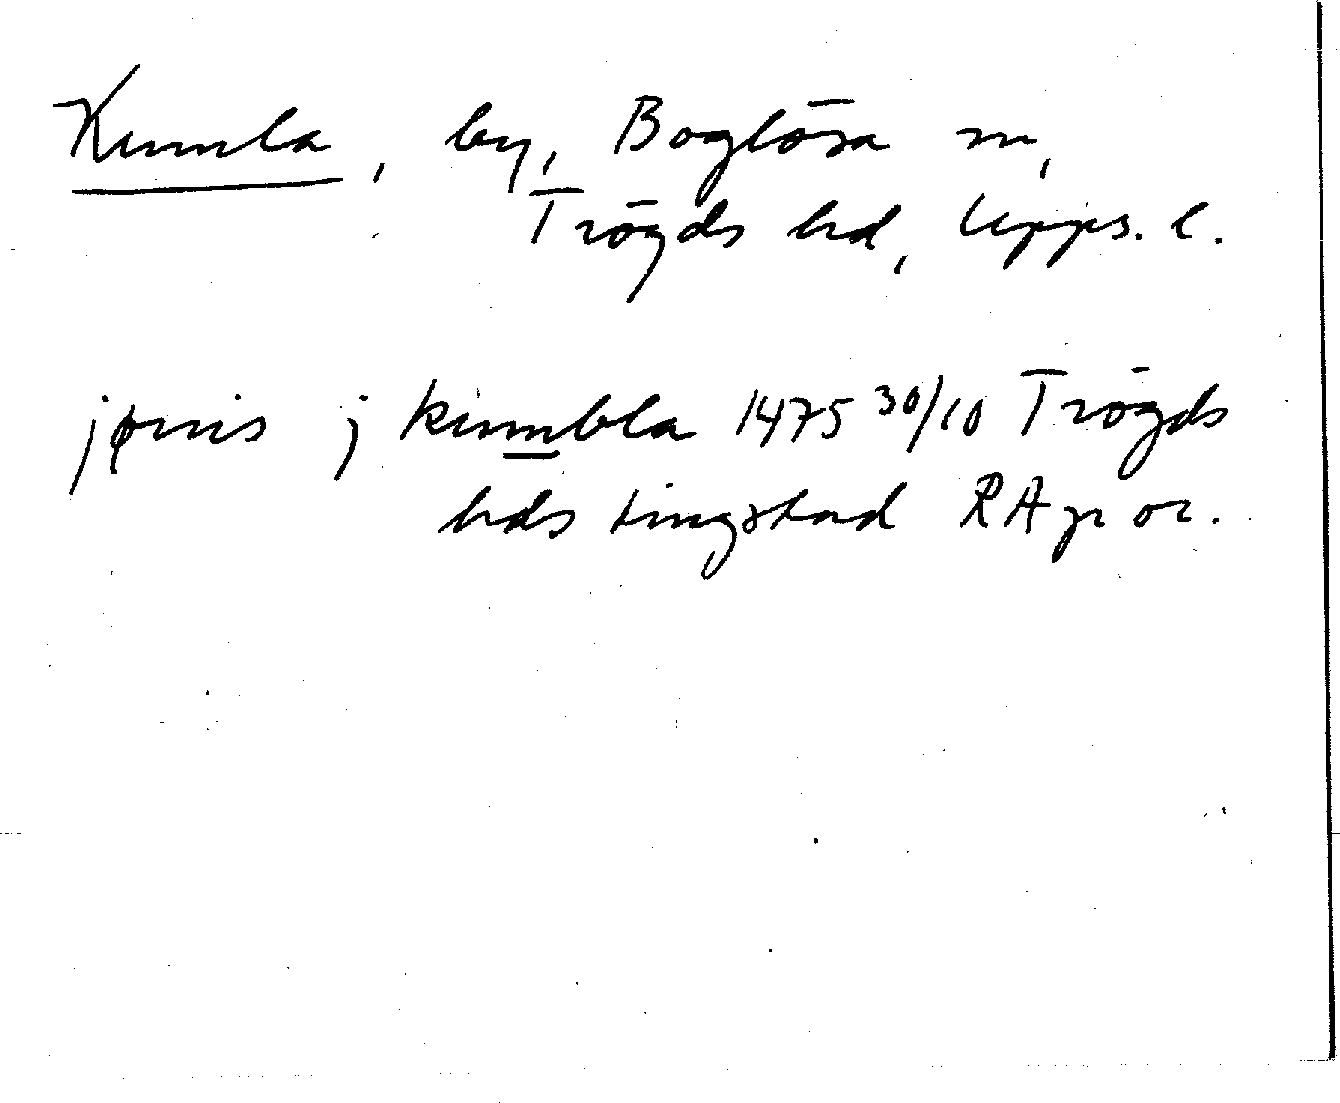 Kumla, by, Boglösa sn,
Trögds hd, Upps. l.
jønis j kumbla 1475 30/10 Trögds
hds tingstad RAp or.